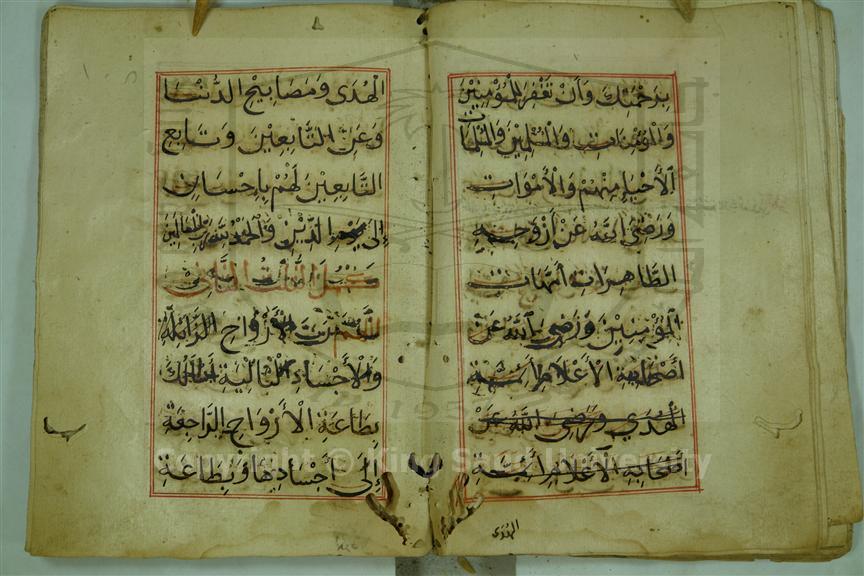 برحمتك وان تغفر للمؤمنين
والمؤمنات والمسلمين والمسلمات
الأحياء منهم والأموات
ورضي الله عن أزواجه
الطاهرات أمهات
المؤمنين ورضي الله عن
أصحابه الأعلام أئمة
الهدى ورضي الله عن
أصحابه الأعلام أئمة
الهدى
الهدى ومصابيح الدنيا
وعن التابعين وتابع
التابعين لهم بإحسان
إلى يوم الدين والحمد لله رب العالمين
الثلث الثاني
اللهم رب الأرواح
والأجساد البالية أسألك
بطاعة الأرواح الراجعة
إلى أجسادها وبطاعة
Copyright © King Saud University